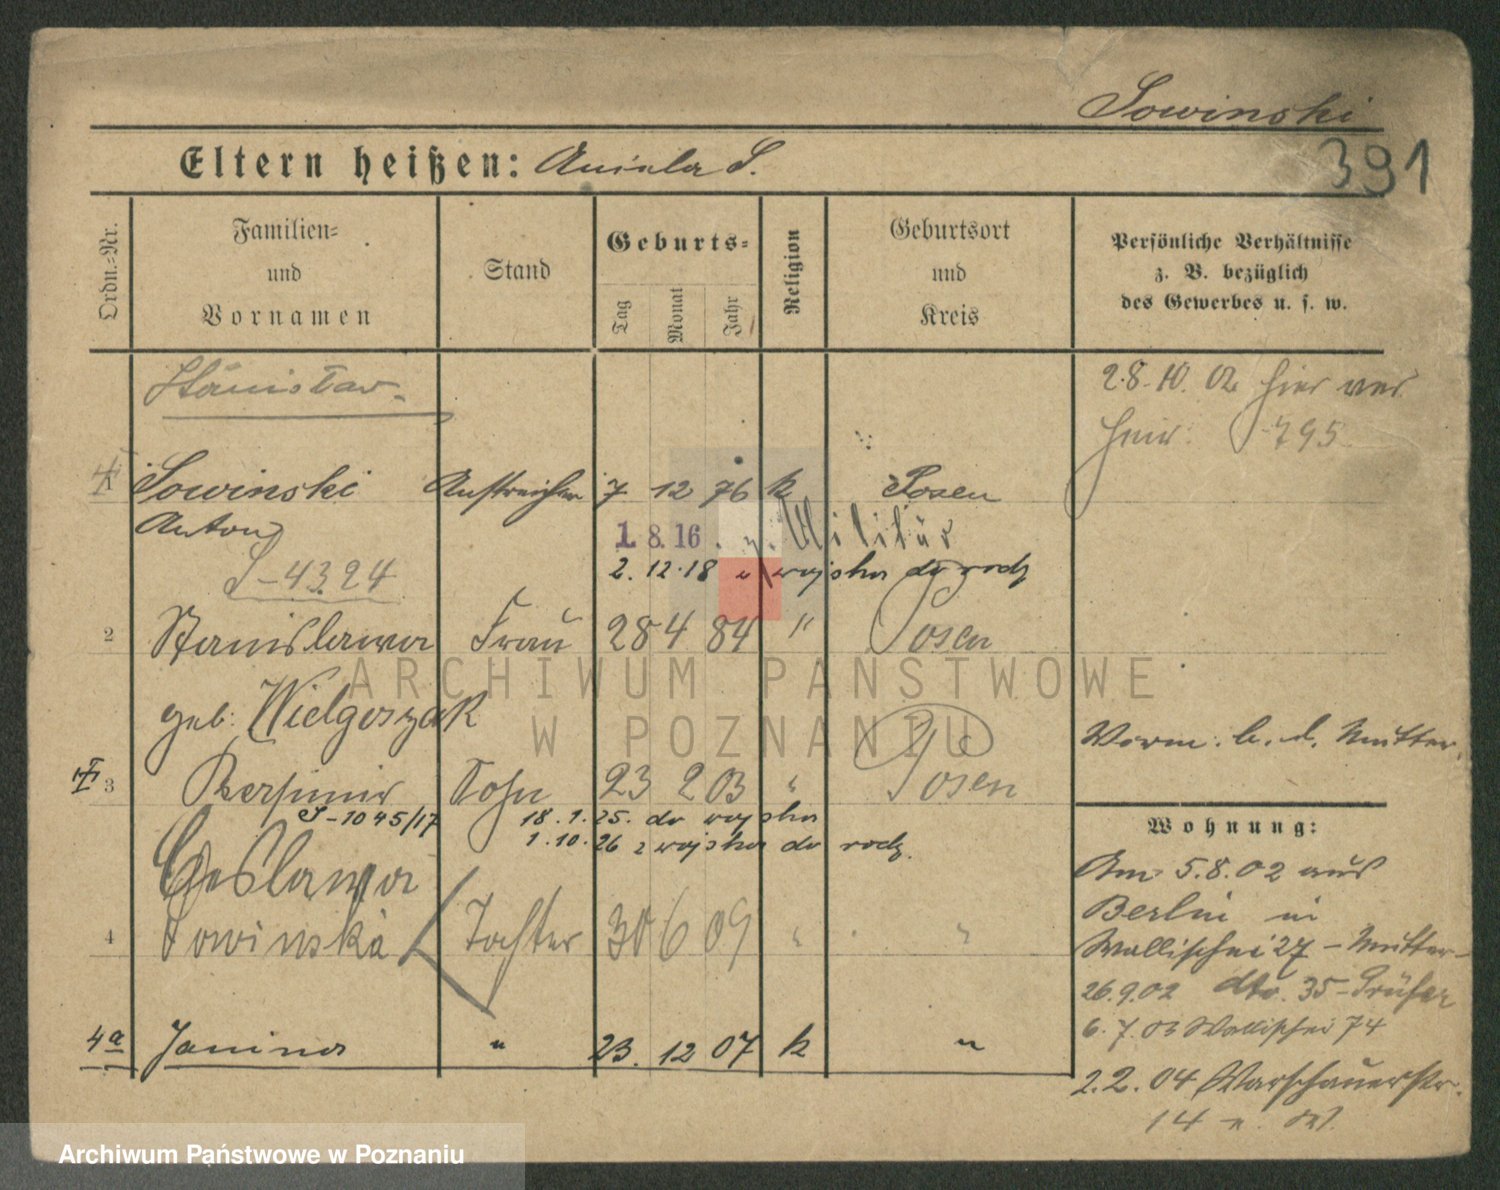 Sowinski
391
Eltern heißen: Aniela S.
Ordn.-Nr.
Familien-
und
Vornamen
Stand
Geburts-
Tag
Monat
Jahr
Religion
Geburtsort
und
Kreis
Persönliche Verhältnisse
z. B. bezüglich
des Gewerbes u. s. w.
Stanisław
28.10.02 hier ver
heir. 795
1 Sowinski Anstreicher 7 12 76 k Posen
Anton
1.8.16. z. Militär
S-4324
2.12.18 z wojska do rodz
2 Stanislawa Frau 28 4 84 " Posen
geb. Wielgoszak
Vorm. b. d. Mutter.
3 Sohn 23 2 03 " Posen
S-1045/17 18.1.25. do wojska
1.10.26 z wojska do rodz.
Wohnung:
Ceslawa
4 Sowinska Tochter 30 6 09 " "
Am 5.8.02 aus
Berlin in
Wallischei 27 - Mutter-
26.9.02 dto. 35-
6.7.03 Wallischei 74
4a Janina " 23. 12 07 k "
2.2.04 Warschauerstr.
14
ARCHIWUM PAŃSTWOWE
W POZNANIU
Archiwum Państwowe w Poznaniu